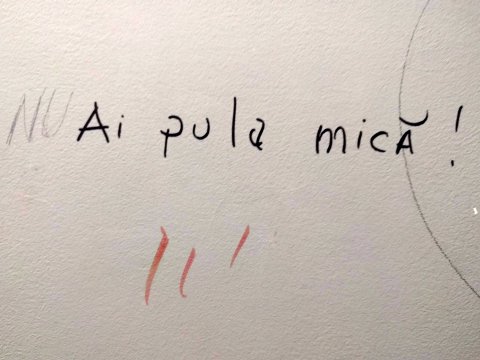 NU Ai pula mică!